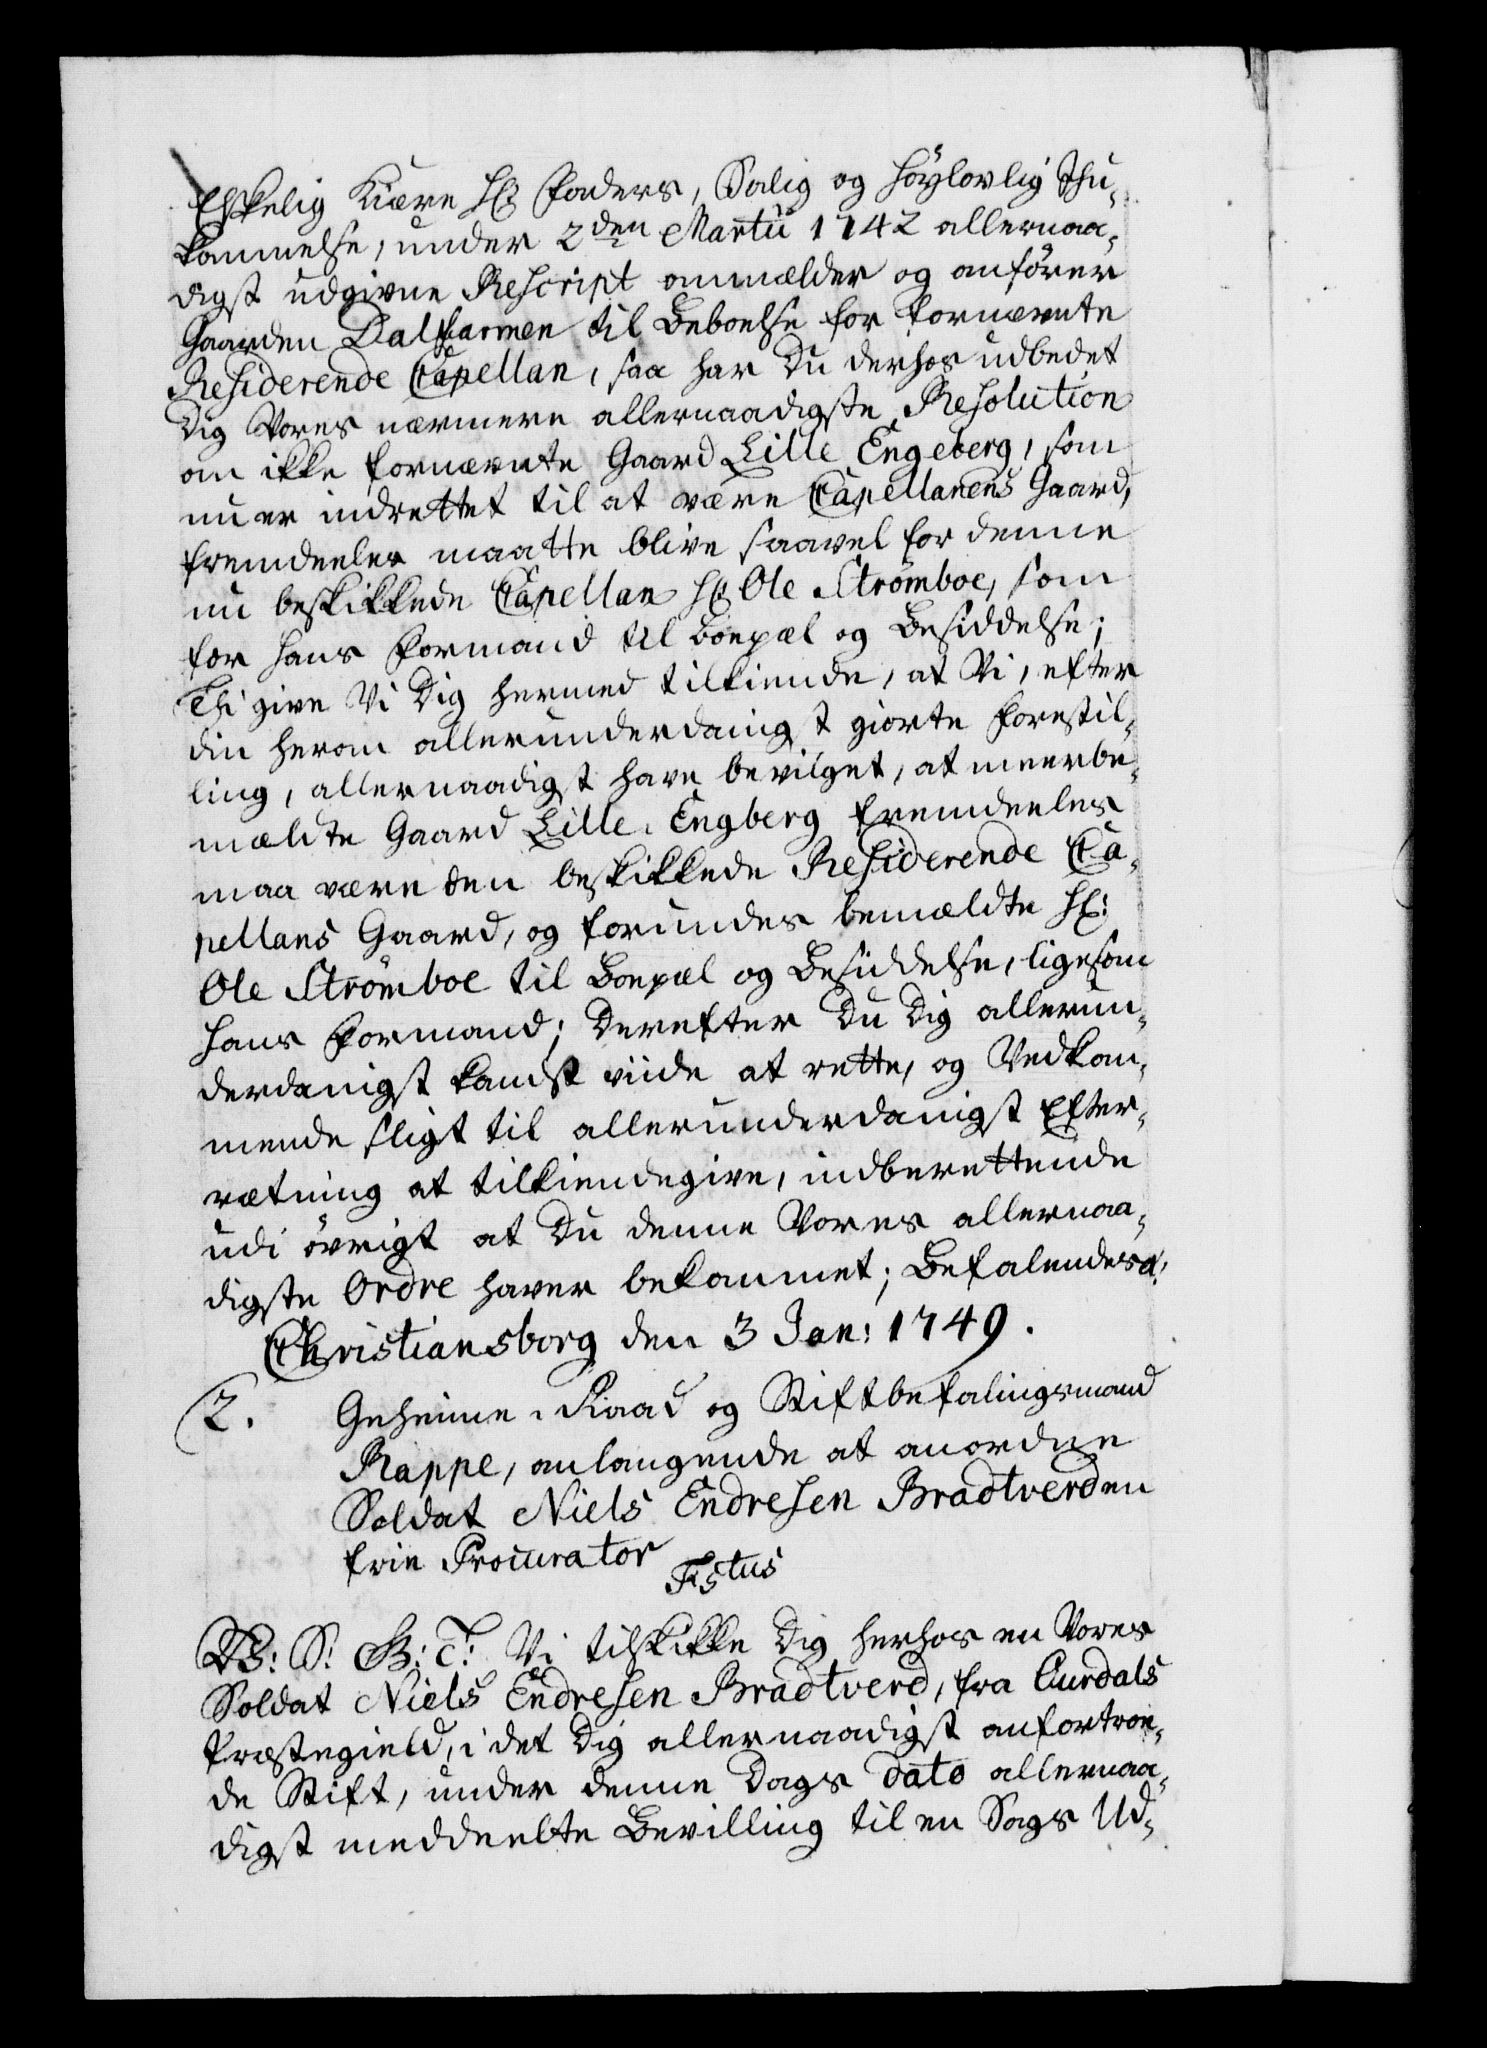 Elskelig Kiære Hr Faders, Salig og Höylovlig Ihu-
kommelse, under 2den Martii 1742 allernaa-
digst udgivne Rescript ommælder og anförer
Gaarden Dalskarmen til Beboelse for fornævnte
Residerende Capellan, saa har Du derhos udbedet
Dig Vores nærmere allernaadigste Resolution
om ikke fornævnte Gaard Lille Engeberg, som
nu er indrettet til at være Capellanens Gaard,
fremdeeles maatte blive saavel for denne
nu beskikkede Capellan Hr Ole Strömboe, som
for hans Formand til boepæl og Besiddelse;
Thi give Vi Dig hermed tilkiende, at Vi, efter
din herom allerunderdanigst giorte Forestil-
ling, allernaadigst have bevilget, at meerbe-
mældte Gaard Lille Engberg fremdeeles
maa være den beskikkede Residerende Ca-
pellans Gaard, og forundes bemældte Hr:
Ole Strömboe til Boepæl og Besiddelse, ligesom
hans Formand; Derefter Du Dig allerun-
derdanigst kandst viide at rette, og Vedkom-
mende sligt til allerunderdanigst Efter-
rætning at tilkiendegive, indberettende
udi övrigt at Du denne Vores allernaa-
digste Ordre haver bekommet; Befalendes &:
Christiansborg den 3 Jan: 1749.
2. Geheime-Raad og Stiftbefalingsmand
Rappe, anlangende at anordne
Soldat Niels Endresen Bradtverd en
frie Procurator
F5tus
V: S: G: T: Vi tilskikke Dig herhos en Vores
Soldat Niels Endresen Bradtverd, fra Aurdals
Præstegield, i det Dig allernaadigst anfortroe-
de Stift, under denne Dags Dato allernaa-
digst meddeelte Bevilling til en Sags Ud-